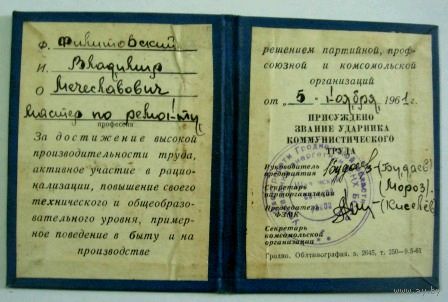 Ф. Филитовский
И. Владимир
О Мечеславович
мастер по ремонту
профессия
За достижение высокой
производительности труда,
активное участие в рацио-
нализации, повышение своего
технического и общеобразо-
вательного уровня, пример-
ное поведение в быту и на
производстве
решением партийной, проф-
союзной и комсомольской
организаций
от „5 - ноября 1961 г.
ПРИСУЖДЕНО
ЗВАНИЕ УДАРНИКА
КОММУНИСТИЧЕСКОГО
ТРУДА
Руководитель
предприятия (Будаев)
Секретарь
парторганизации (Мороз)
Председатель
ФЗМК
Секретарь
комсомольской
организации
Гродно, Облтипография, з. 2645, т. 250—9.5-61